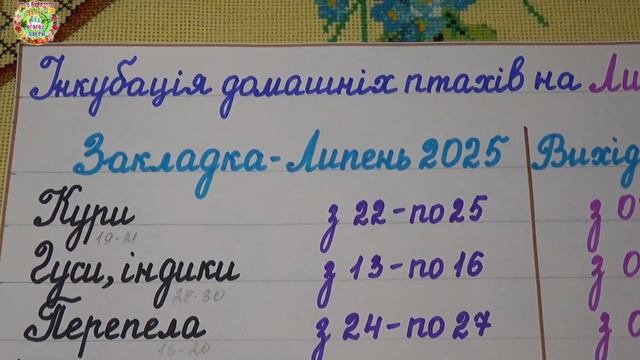 Інкубація домашніх птахів на Ли
Закладка - Липень 2025 Вихід
Кури з 22 - по 25 з 0
19-21
Гуси, індики з 13 - по 16 з 0
28-30
Перепела з 24 - по 27 з 0
16-20